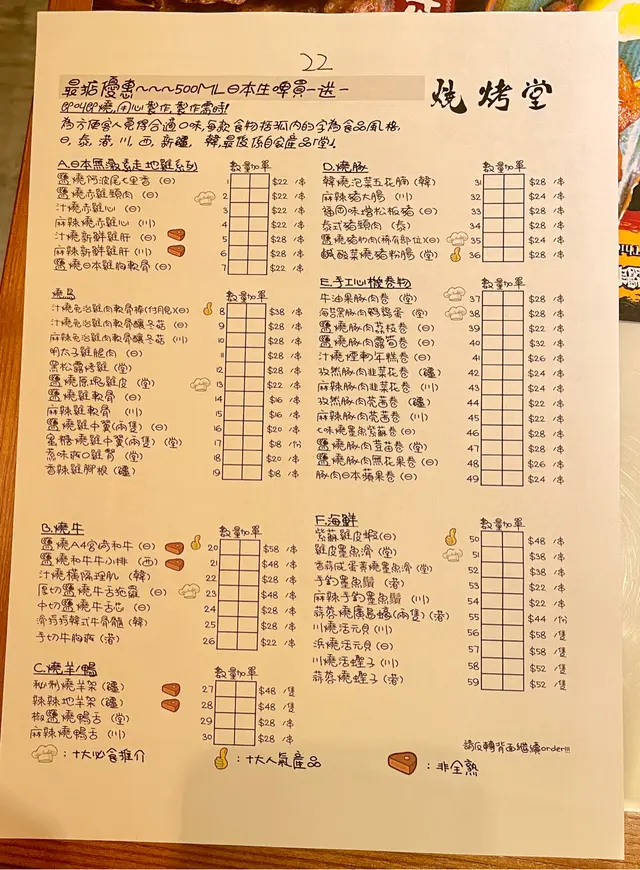 22
最抵優惠~~~500ML日本生啤買一送一
燒烤堂
即叫即燒,用心製作,製作需時!
為方便客人覓得合適口味,每款食物括弧內的字為食品風格,
日,泰,港,川,西,新疆,韓,最後係自家產品(堂)。
A.日本無激素走地雞系列 數量加單
鹽燒阿波尾七里香 (日) 1 $22 /串
鹽燒赤雞頸肉 (日) 2 $22 /串
汁燒赤雞心 (日) 3 $22 /串
麻辣燒赤雞心 (川) 4 $22 /串
汁燒新鮮雞肝 (日) 5 $28 /串
麻辣新鮮雞肝 (川) 6 $28 /串
鹽燒日本雞胸軟骨 (日) 7 $22 /串
燒鳥 數量加單
汁燒免治雞肉軟骨棒(付月見)(日) 8 $38 /串
汁燒免治雞肉軟骨釀冬菇 (日) 9 $28 /串
麻辣免治雞肉軟骨釀冬菇 (川) 10 $28 /串
明太子雞腿肉 (日) 11 $28 /串
黑松露烤雞 (堂) 12 $28 /串
鹽燒原塊雞皮 (堂) 13 $22 /串
鹽燒雞軟骨 (日) 14 $16 /串
麻辣雞軟骨 (川) 15 $16 /串
鹽燒雞中翼(兩隻) (日) 16 $20 /串
蜜糖燒雞中翼(兩隻) (堂) 17 $18 /份
惹味爽口雞腎 (堂) 18 $20 /串
香辣雞腳根 (疆) 19 $18 /串
B.燒牛 數量加單
鹽燒A4宮崎和牛 (日) 20 $58 /串
鹽燒和牛牛小排 (西) 21 $48 /串
汁燒橫隔理肌 (韓) 22 $28 /串
厚切鹽燒牛舌 (日) 23 $48 /串
中切鹽燒牛舌芯 (日) 24 $28 /串
韓式牛骨髓 (韓) 25 $28 /串
手切牛胸爽 (港) 26 $22 /串
C.燒羊/鴨 數量加單
秘制燒羊架 (疆) 27 $48 /隻
辣辣地羊架 (疆) 28 $48 /隻
椒鹽燒鴨舌 (堂) 29 $28 /串
麻辣燒鴨舌 (川) 30 $28 /串
D.燒豚 數量加單
韓燒泡菜五花腩 (韓) 31 $28 /串
麻辣豬大腸 (川) 32 $24 /串
福岡味增松板豬 (日) 33 $28 /串
泰式豬頸肉 (泰) 34 $28 /串
鹽燒豬肉(稀有部位)(日) 35 $24 /串
鹹酸菜燒豬粉腸 (堂) 36 $28 /串
E.手工心機卷物 數量加單
牛油果豚肉卷 (堂) 37 $28 /串
海苔黑豚肉鵪鶉蛋 (堂) 38 $28 /串
鹽燒豚肉荔枝卷 (日) 39 $22 /串
鹽燒豚肉露筍卷 (日) 40 $32 /串
汁燒煙鴨年糕卷 (日) 41 $26 /串
孜然豚肉韭菜花卷 (疆) 42 $24 /串
麻辣豚肉韭菜花卷 (川) 43 $24 /串
孜然豚肉芫茜卷 (疆) 44 $22 /串
麻辣豚肉芫茜卷 (川) 45 $22 /串
七味燒墨魚紫蘇卷 (日) 46 $28 /串
鹽燒豚肉豆苗卷 (堂) 47 $28 /串
鹽燒豚肉無花果卷 (日) 48 $26 /串
豚肉日本蘋果卷 (日) 49 $24 /串
F.海鮮 數量加單
紫蘇雞皮蝦(日) 50 $48 /串
雞皮墨魚滑 (堂) 51 $38 /串
香蒜咸蛋黃燒墨魚滑 (堂) 52 $38 /串
手釣墨魚鬚 (港) 53 $22 /串
麻辣手釣墨魚鬚 (川) 54 $22 /串
蒜蓉燒廣島蠔(兩隻) (港) 55 $44 /份
川燒活元貝 (川) 56 $58 /隻
浜燒活元貝 (日) 57 $58 /隻
川燒活蟶子 (川) 58 $52 /隻
蒜蓉燒蟶子 (港) 59 $52 /隻
請反轉背面繼續order!!!
:十大必食推介
:十大人氣產品
:非全熟